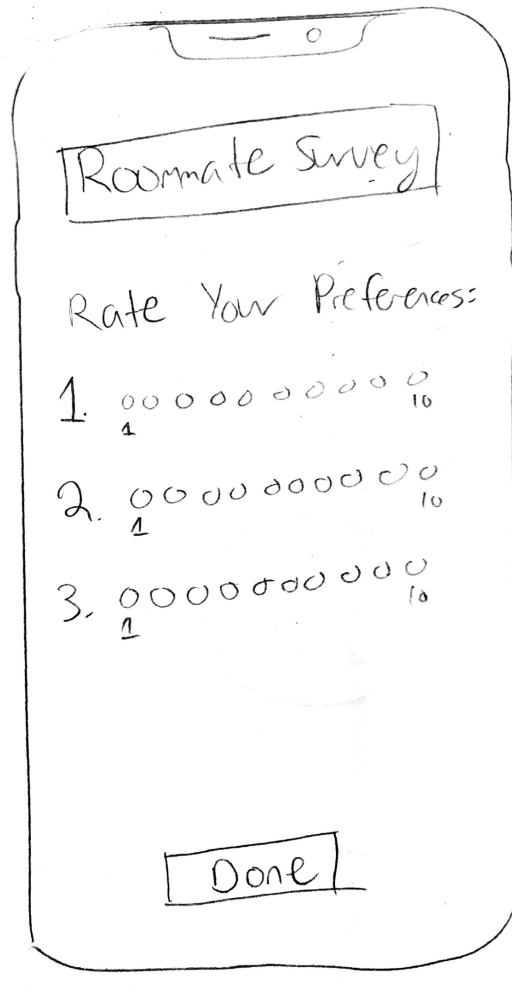 Roommate Survey
Rate Your Preferences:
1.
1 10
2.
1 10
3.
1 10
Done